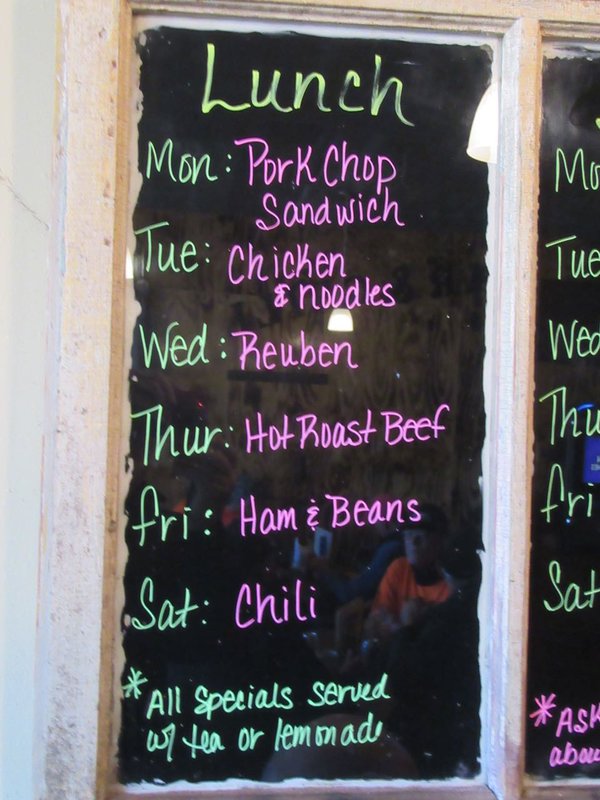 Lunch
Mon: Pork Chop
Sandwich
Tue: Chicken
& noodles
Wed: Reuben
Thur: Hot Roast Beef
Fri: Ham & Beans
Sat: Chili
*All Specials served
w/ tea or lemonade
Mo
Tue
Wed
Thu
Fri
Sat
*Ask
abou